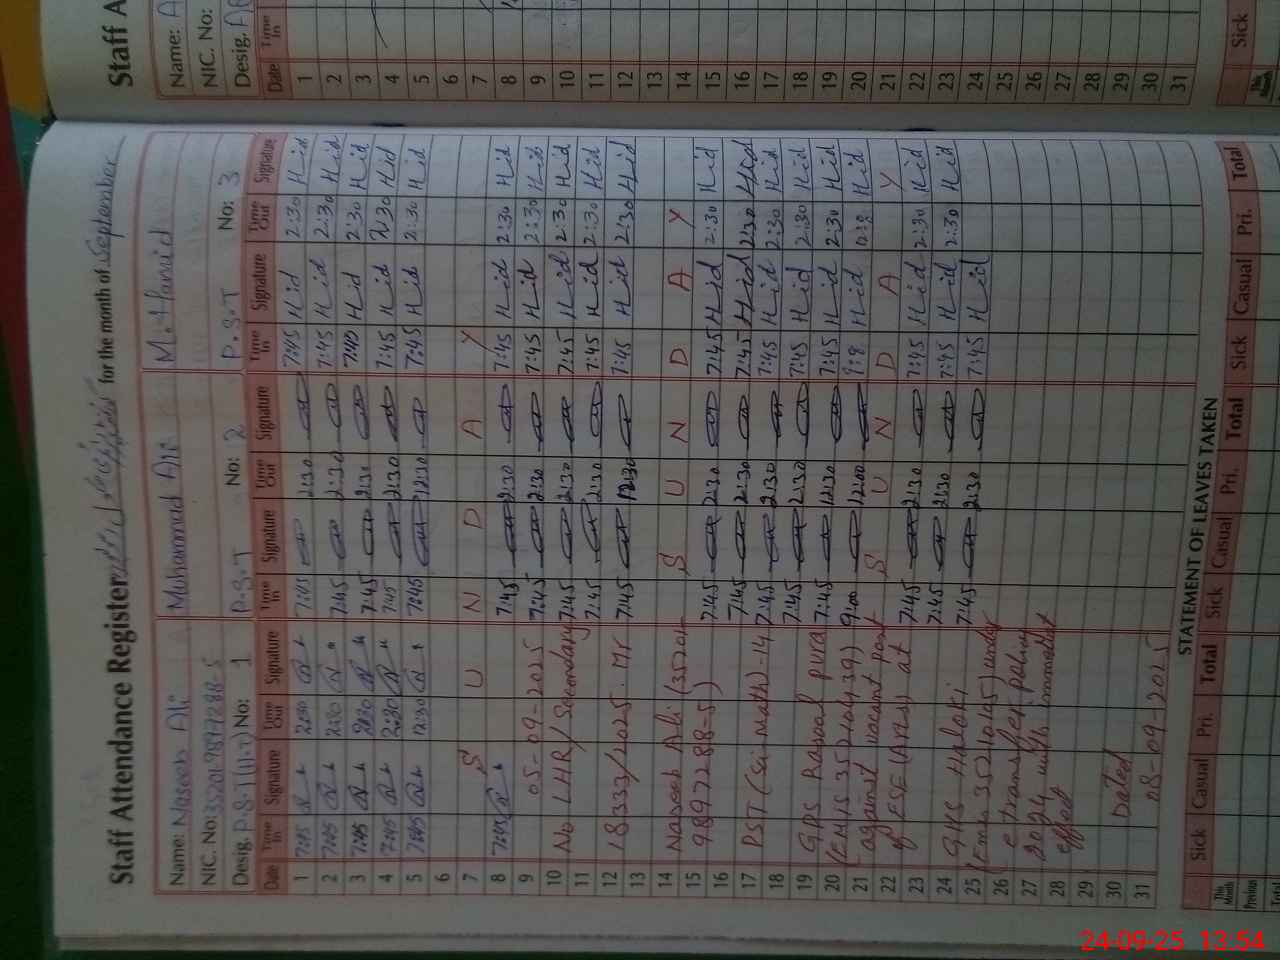 Staff Attendance Register for the month of September
Name: Naseeb Ali Muhammad Ali M. Hanid
NIC. No: 35201-9897288-5
Desig. P.S.T No: 1 P.S.T No: 2 P.S.T No: 3
Date Time In Signature Time Out Signature Time In Signature Time Out Signature Time In Signature Time Out Signature
1 7:45 2:30 7:45 2:30 7:45 Hid 2:30 Hid
2 7:45 2:30 7:45 2:30 7:45 Hid 2:30 Hid
3 7:45 2:30 7:45 2:30 7:45 Hid 2:30 Hid
4 7:45 2:30 7:45 2:30 7:45 Hid 2:30 Hid
5 7:45 12:30 7:45 12:30 7:45 Hid 2:30 Hid
6
7 S U N D A Y
8 7:45 7:45 2:30 7:45 Hid 2:30 Hid
9 05-09-2025 7:45 2:30 7:45 Hid 2:30 Hid
10 No LHR/Secondary 7:45 2:30 7:45 Hid 2:30 Hid
11 7:45 2:30 7:45 Hid 2:30 Hid
12 18333/2025. Mr 7:45 12:30 7:45 Hid 2:30 Hid
13
14 Naseeb Ali (35201- S U N D A Y
15 9897288-5) 7:45 2:30 7:45 Hid 2:30 Hid
16 7:45 2:30 7:45 Hid 2:30 Hid
17 PST (Sci-math)-14 7:45 2:30 7:45 Hid 2:30 Hid
18 7:45 2:30 7:45 Hid 2:30 Hid
19 GPS Rasool pura 7:45 12:30 7:45 Hid 2:30 Hid
20 (EMIS 35210439) 9:00 12:00 Hid Hid
21 against vacant post S U N D A Y
22 of ESE (Arts) at 7:45 2:30 7:45 Hid 2:30 Hid
23 7:45 2:30 7:45 Hid 2:30 Hid
24 GHS Haloki 7:45 2:30 7:45 Hid
25 (Emis 35210105) under
26 e transfer policy
27 2024 with immediat
28 effect
29
30 Dated
31 08-09-2025
STATEMENT OF LEAVES TAKEN
Sick Casual Pri. Total Sick Casual Pri. Total Sick Casual Pri. Total
This Month
Previous
Total
Staff A
Name: A
NIC. No:
Desig. AE
Date Time In
1
2
3
4
5
6
7
8
9
10
11
12
13
14
15
16
17
18
19
20
21
22
23
24
25
26
27
28
29
30
31
Sick
This Month
24-09-25 13:54